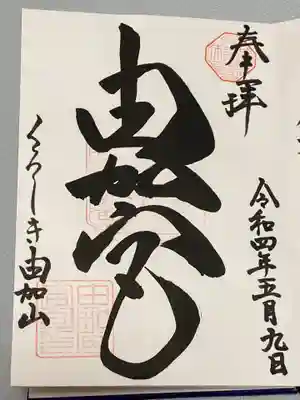 奉拝
令和四年五月九日
由加宮
くらしき・由加山